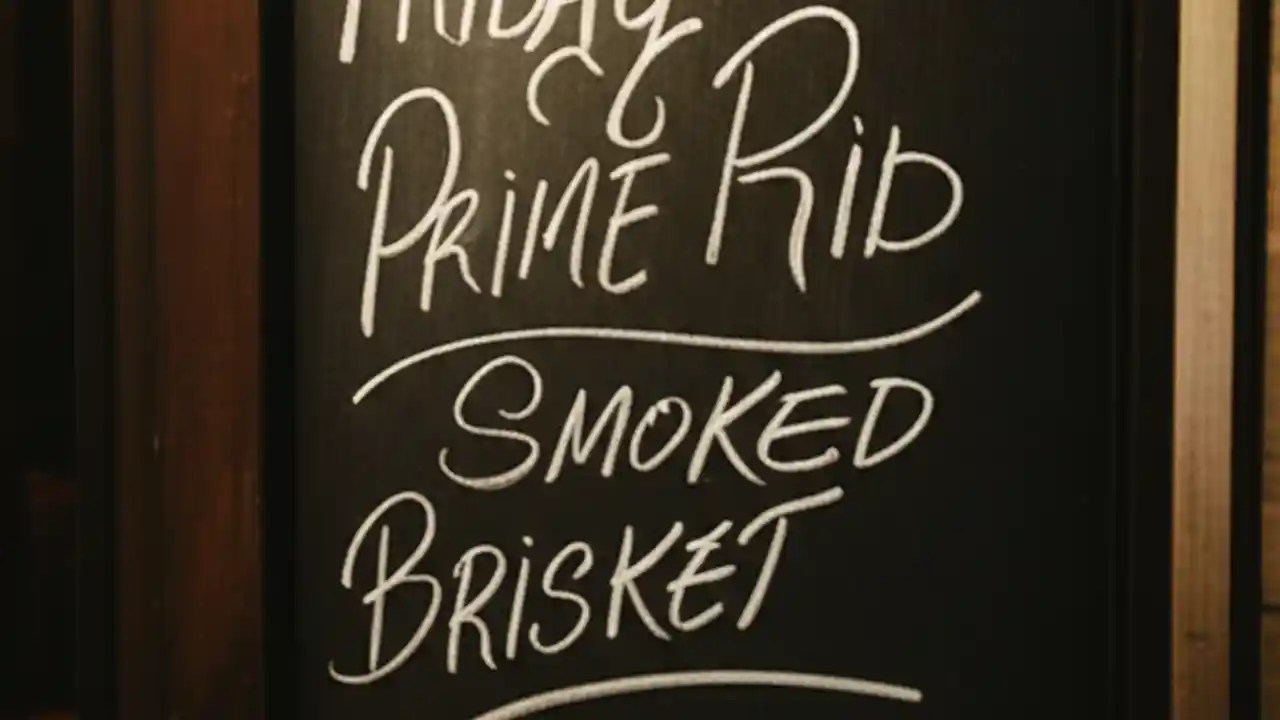 FRIDAY
PRIME RIB
SMOKED
BRISKET